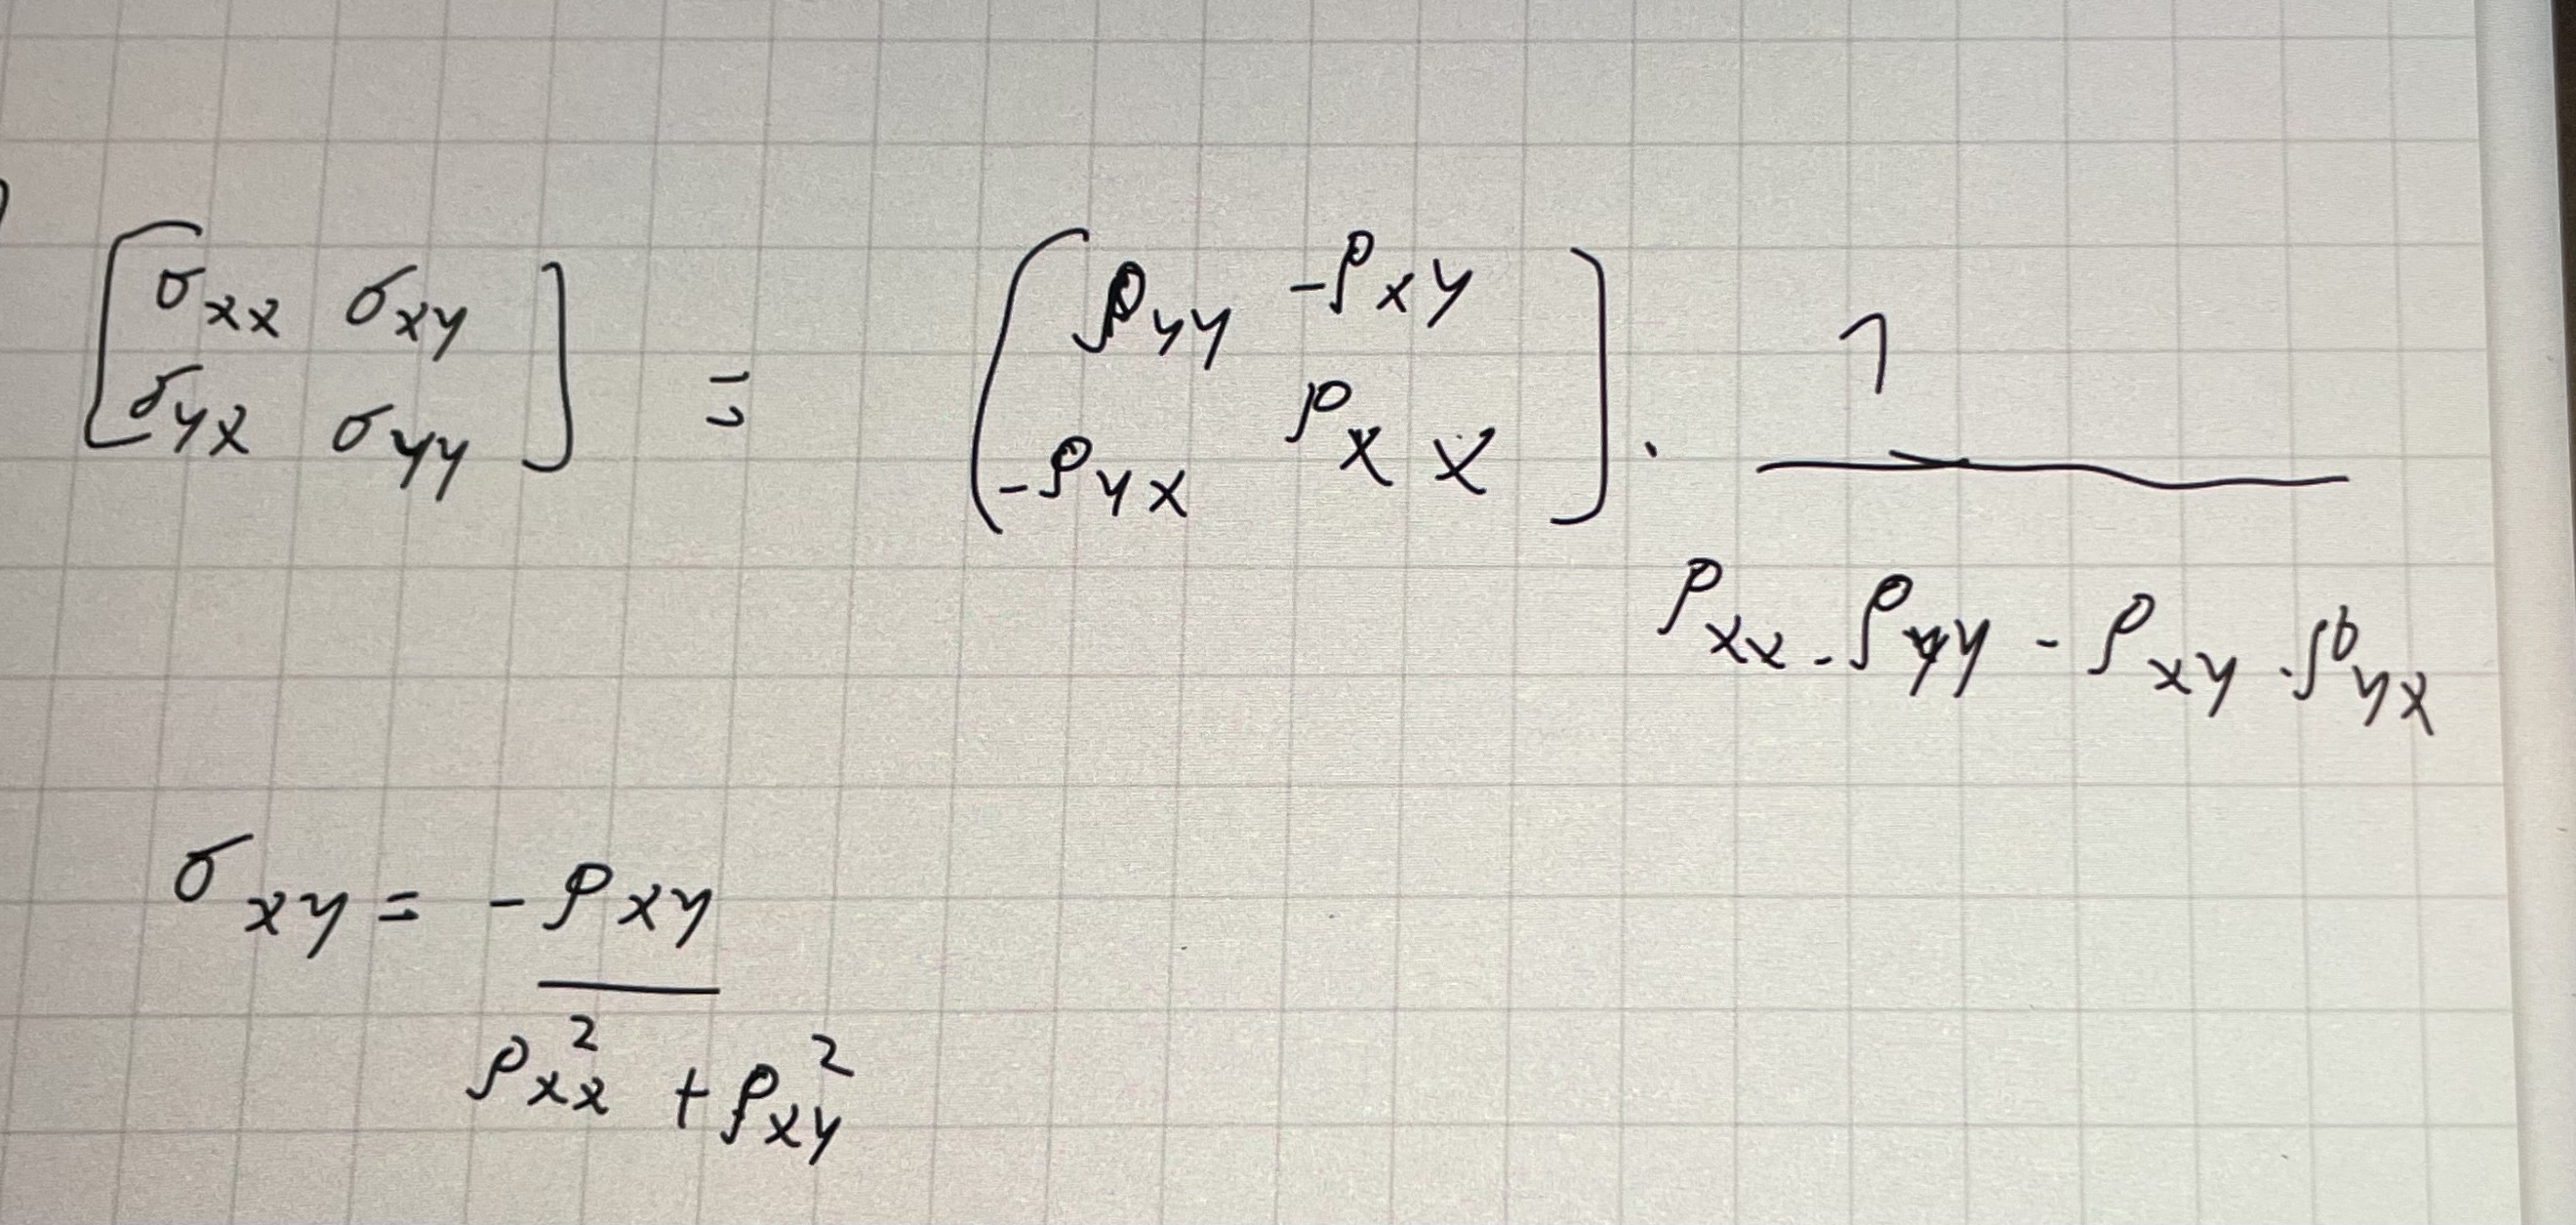 [σxx σxy
σyx σyy] = (ρyy -ρxy
-ρyx ρxx] · 1 / (ρxx · ρyy - ρxy · ρyx)
σxy = -ρxy / (ρxx² + ρxy²)